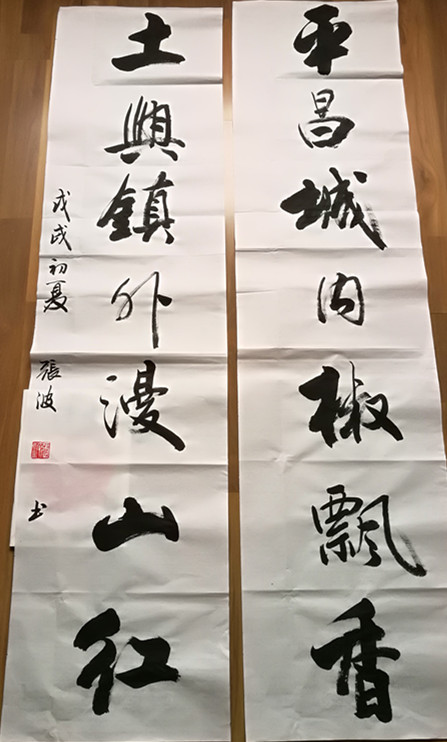 平昌城内椒飄香
土興鎮外漫山红
戊戌初夏
張波
书